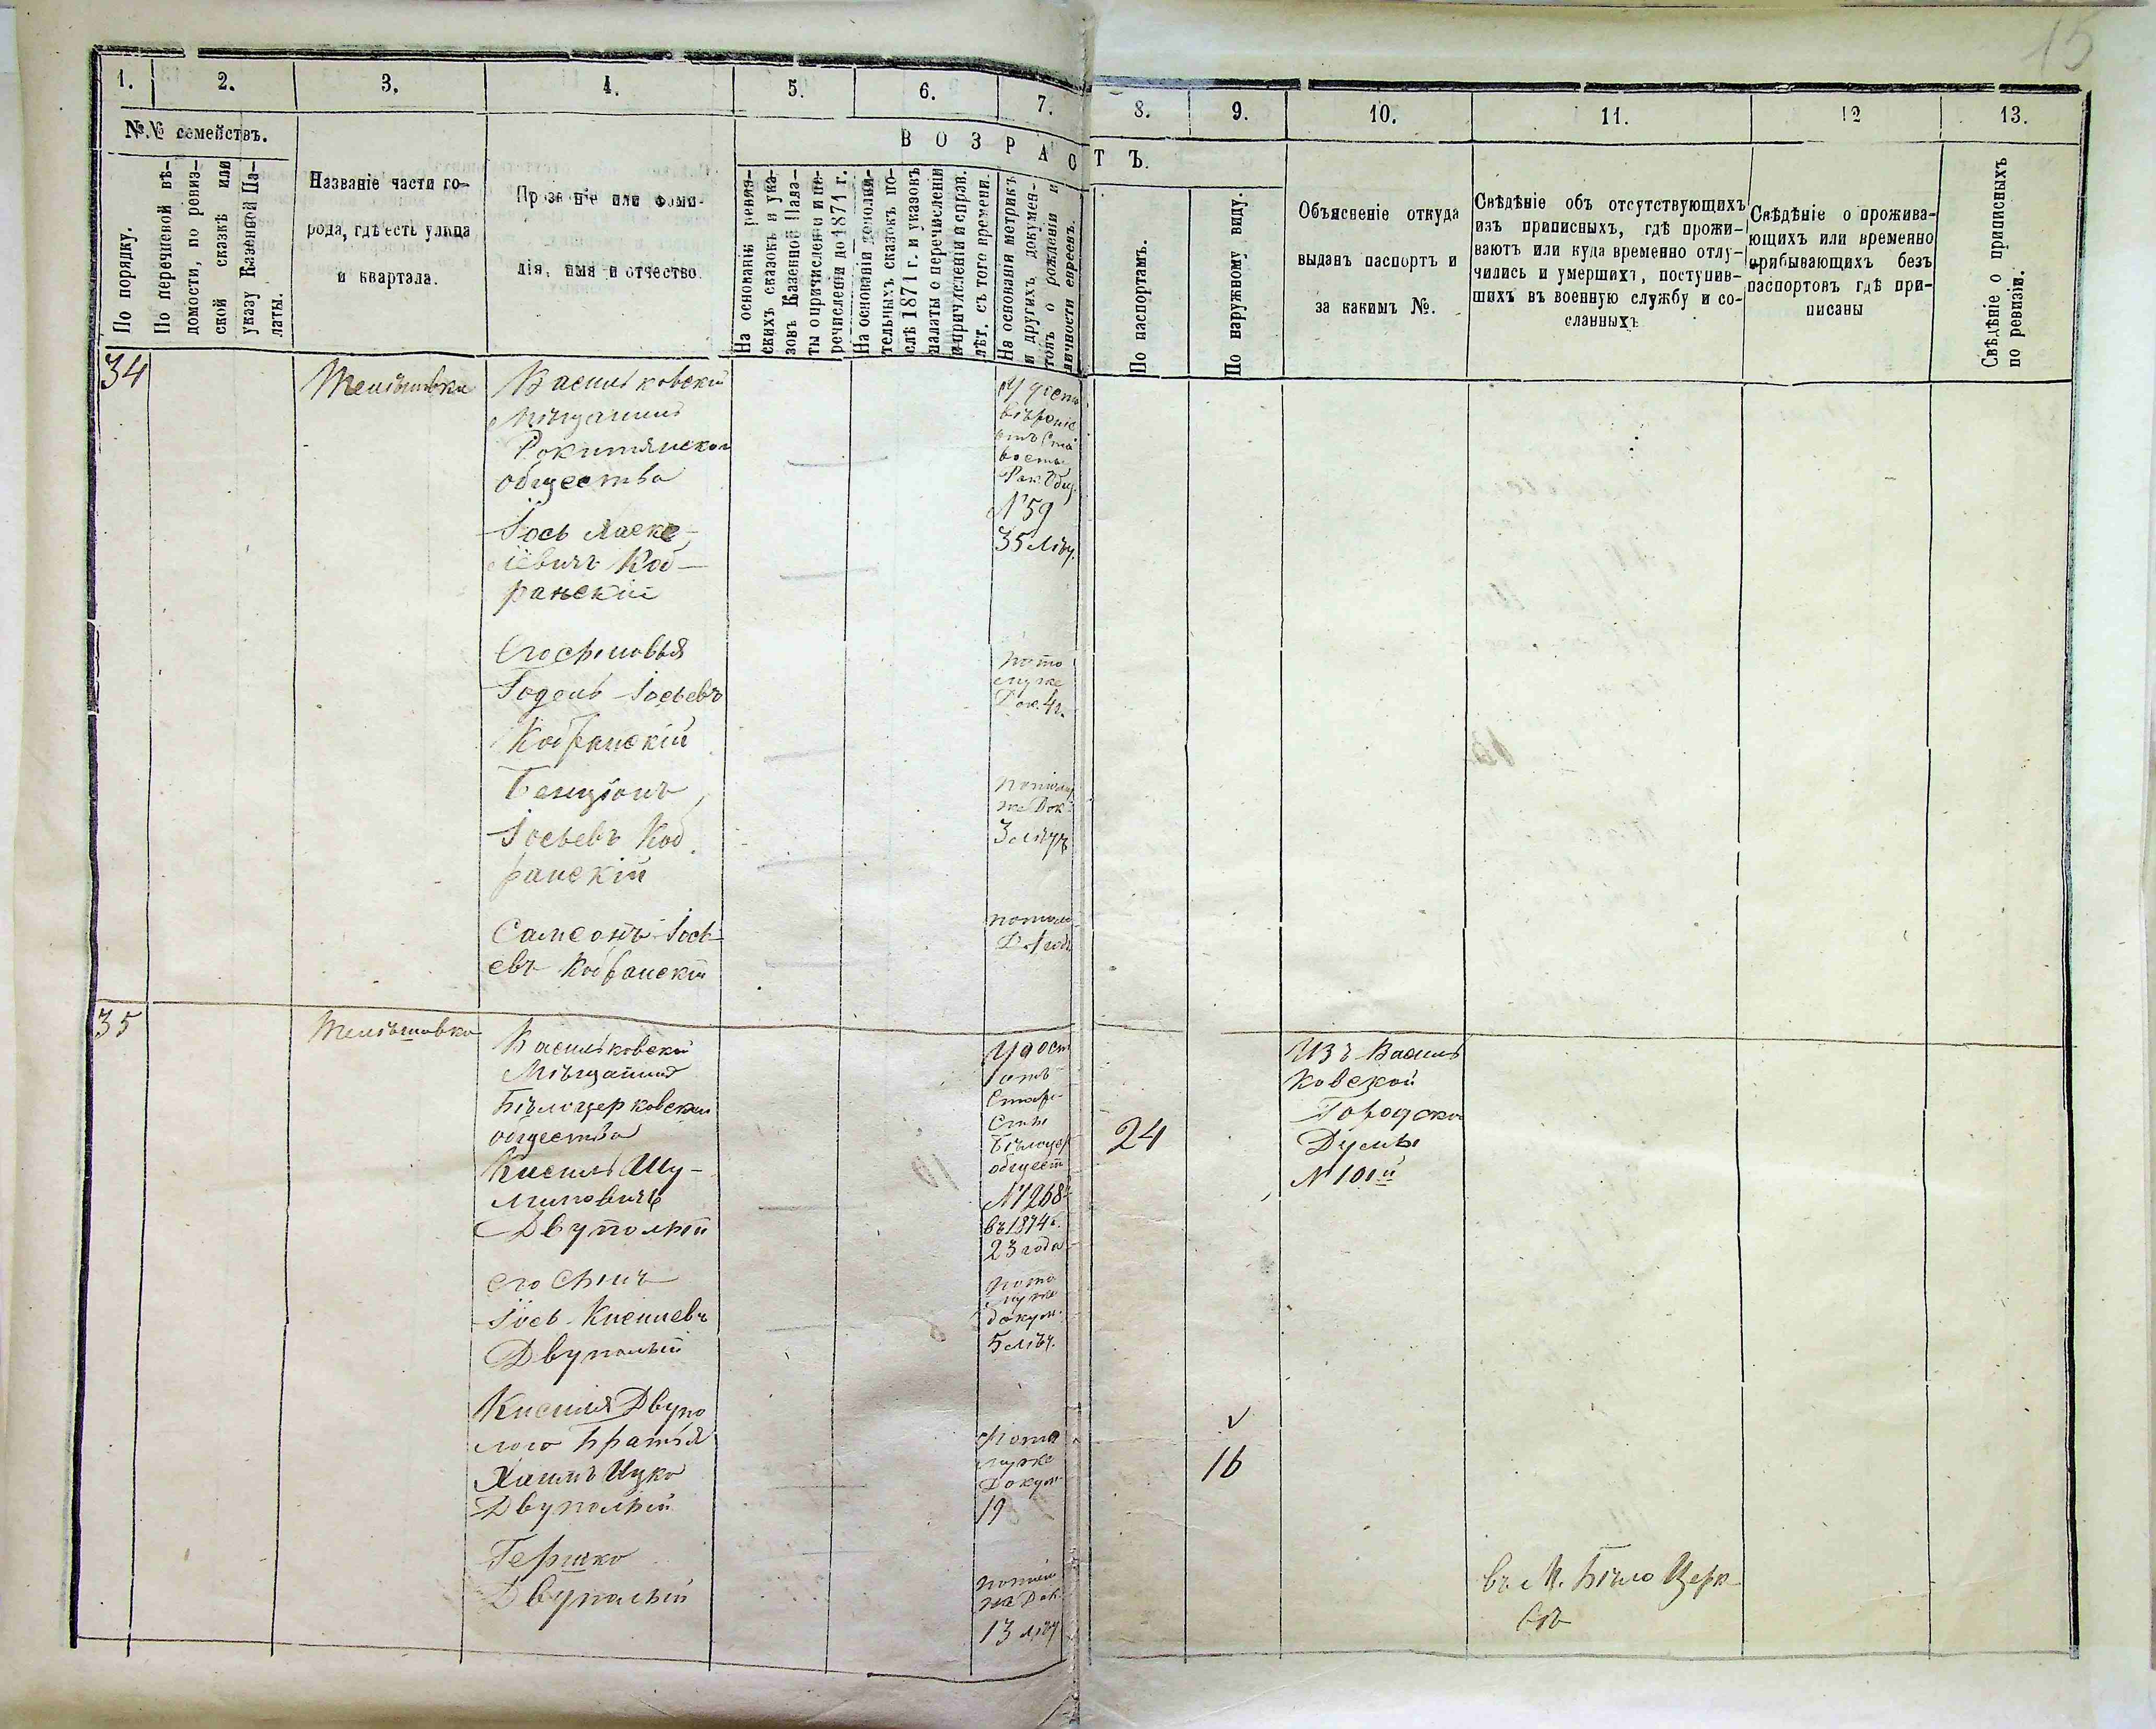 15
1. 2. 3. 4. 5. 6. 7. 8. 9. 10. 11. 12 13.
№.№ семействъ.
ВОЗРАСТЪ.
По порядку.
По перечневой вѣ-
домости, по ревиз-
ской сказкѣ или
указу Казенной Па-
латы.
Названіе части го-
рода, гдѣ есть улица
и квартала.
Прозваніе или фами-
лія, имя и отчество.
На основаніи ревиз-
скихъ сказокъ и ука-
зовъ Казенной Пала-
ты о причисленіи и пе-
речисленіи до 1871 г.
На основаніи дополни-
тельныхъ сказокъ по-
слѣ 1871 г. и указовъ
палаты о перечисленіи
и причисленіи и справ.
лѣт. съ того времени.
На основаніи метрикъ
и другихъ докумен-
товъ о рожденіи и
личности евреевъ.
По паспортамъ.
По наружному виду.
Объясненіе откуда
выданъ паспортъ и
за какимъ №.
Свѣдѣніе объ отсутствующихъ
изъ приписныхъ, гдѣ прожи-
ваютъ или куда временно отлу-
чились и умершихъ, поступив-
шихъ въ военную службу и со-
сланныхъ
Свѣдѣніе о прожива-
ющихъ или временно
прибывающихъ безъ
паспортовъ гдѣ при-
писаны
Свѣдѣніе о приписныхъ
по ревизіи.
34
Телѣшовка
Васильковскій
Мѣщанинъ
Рокитянскаго
общества
Іось
Коб-
ранскій
Удосто
вѣреніе
отъ Ста
росты
Рок. Общ.
№ 59
35 лѣт.
Его сыновья
Іодель Іосьевъ
Кобранскій
по то
муже
Док. 4 г.
Бенціонъ
Іосьевъ Коб
ранскій
по тому
же Док
3 лѣтъ
Самсонъ Іось-
евъ Кобранскій
по тому
Д. 1 годъ
35
Телѣшовка
Васильковскій
Мѣщанинъ
Бѣлоцерковскаго
общества
Кисиль Шу-
лимовичъ
Двуполый
Удост
отъ
Старо
сты
Бѣлоцер
общест
№ 1268
въ 1874 г.
23 года
24
Изъ Василь
ковской
Городской
Думы
№ 101й
его Сынъ
Іось Кисилевъ
Двуполый
по то
муже
докум.
5 лѣт.
Кисиля Двупо
лого Братья
Хаимъ Ицко
Двуполый
По то
муже
Докум
19
16
Гершко
Двуполый
по том
же Док
13 лѣт
въ М. Бѣло Церк-
вѣ